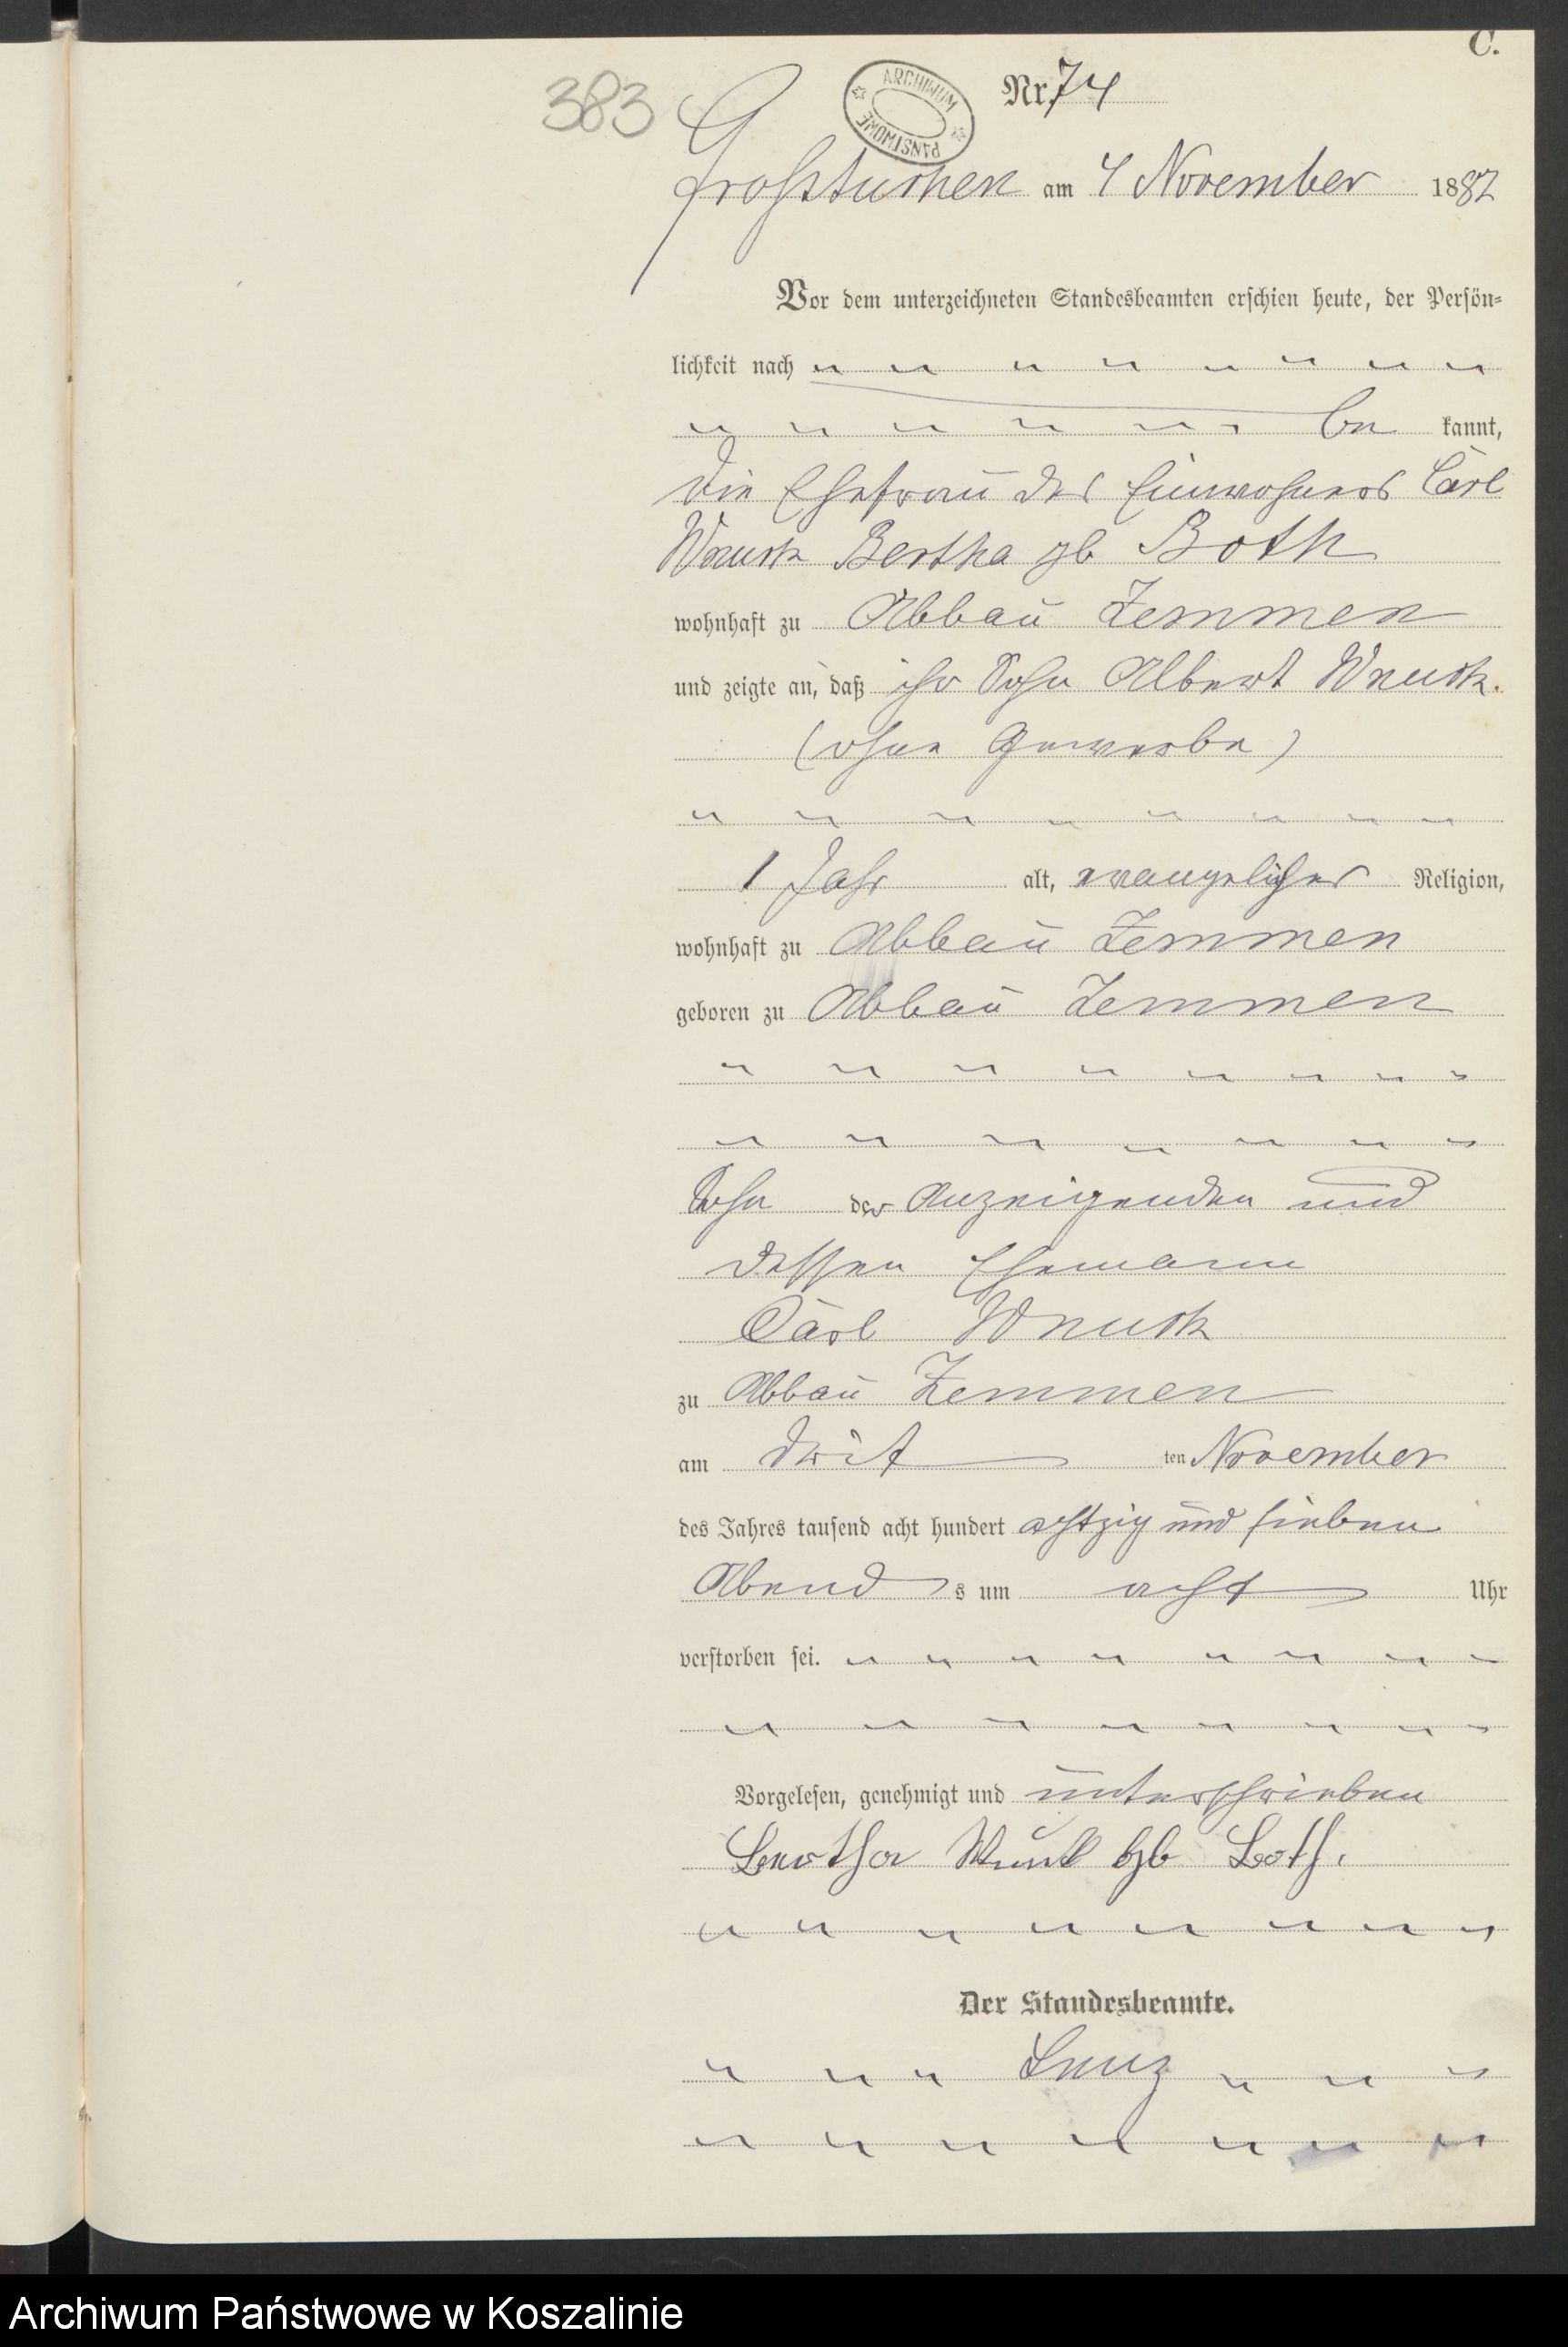 C.
383
ARCHIWUM PAŃSTWOWE
Nr. 74
Großtuchen am 4 November 1887
Vor dem unterzeichneten Standesbeamten erschien heute, der Persön-
lichkeit nach
be kannt,
die Ehefrau des Einwohners Carl
Wnuck Bertha gb Both
wohnhaft zu Abbau Zemmen
und zeigte an, daß ihr Sohn Albert Wnuck.
(ohne Gewerbe)
1 Jahr alt, evangelischer Religion,
wohnhaft zu Abbau Zemmen
geboren zu Abbau Zemmen
Sohn der Anzeigenden und
dessen Ehemann
Carl Wnuck
zu Abbau Zemmen
am drit ten November
des Jahres tausend acht hundert achtzig und sieben
Abend s um acht Uhr
verstorben sei.
Vorgelesen, genehmigt und unterschrieben
Bertha gb Both.
Der Standesbeamte.
Archiwum Państwowe w Koszalinie